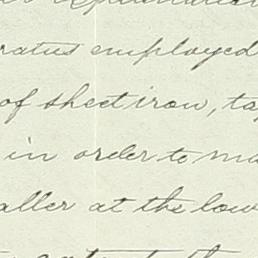 explanation
ratus employed
of sheet iron, ta
in order to ma
aller at the low